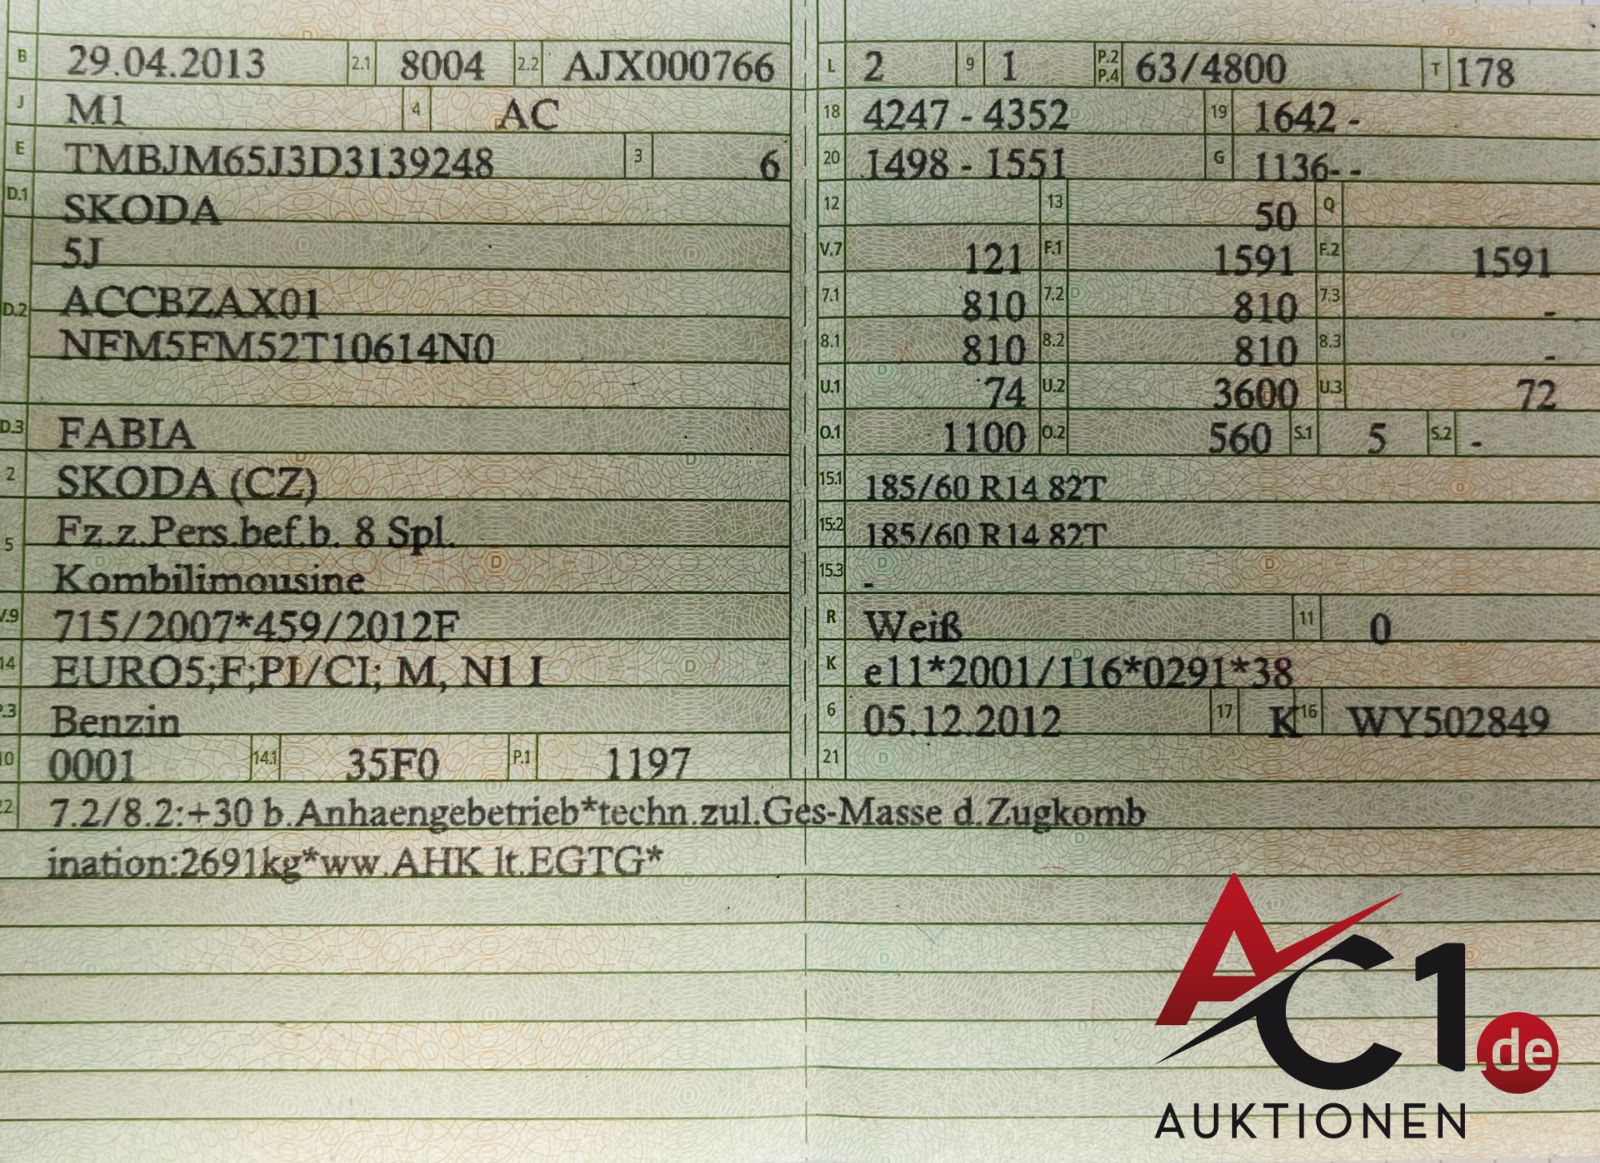 B 29.04.2013 2.1 8004 2.2 AJX000766
J M1 4 AC
E TMBJM65J3D3139248 3 6
D.1 SKODA
5J
D.2 ACCBZAX01
NFM5FM52T10614N0
D.3 FABIA
2 SKODA (CZ)
5 Fz.z.Pers.bef.b. 8 Spl.
Kombilimousine
V.9 715/2007*459/2012F
14 EURO5;F;PI/CI; M, N1 I
P.3 Benzin
10 0001 14.1 35F0 P.1 1197
L 2 9 1 P.2 P.4 63/4800 T 178
18 4247 - 4352 19 1642 -
20 1498 - 1551 G 1136- -
12 13 50 Q
V.7 121 F.1 1591 F.2 1591
7.1 810 7.2 810 7.3 -
8.1 810 8.2 810 8.3 -
U.1 74 U.2 3600 U.3 72
O.1 1100 O.2 560 S.1 5 S.2 -
15.1 185/60 R14 82T
15.2 185/60 R14 82T
15.3 -
R Weiß 11 0
K e11*2001/116*0291*38
6 05.12.2012 17 K 16 WY502849
21
22 7.2/8.2:+30 b.Anhaengebetrieb*techn.zul.Ges-Masse d.Zugkomb
ination:2691kg*ww.AHK lt.EGTG*
AC1.de
AUKTIONEN